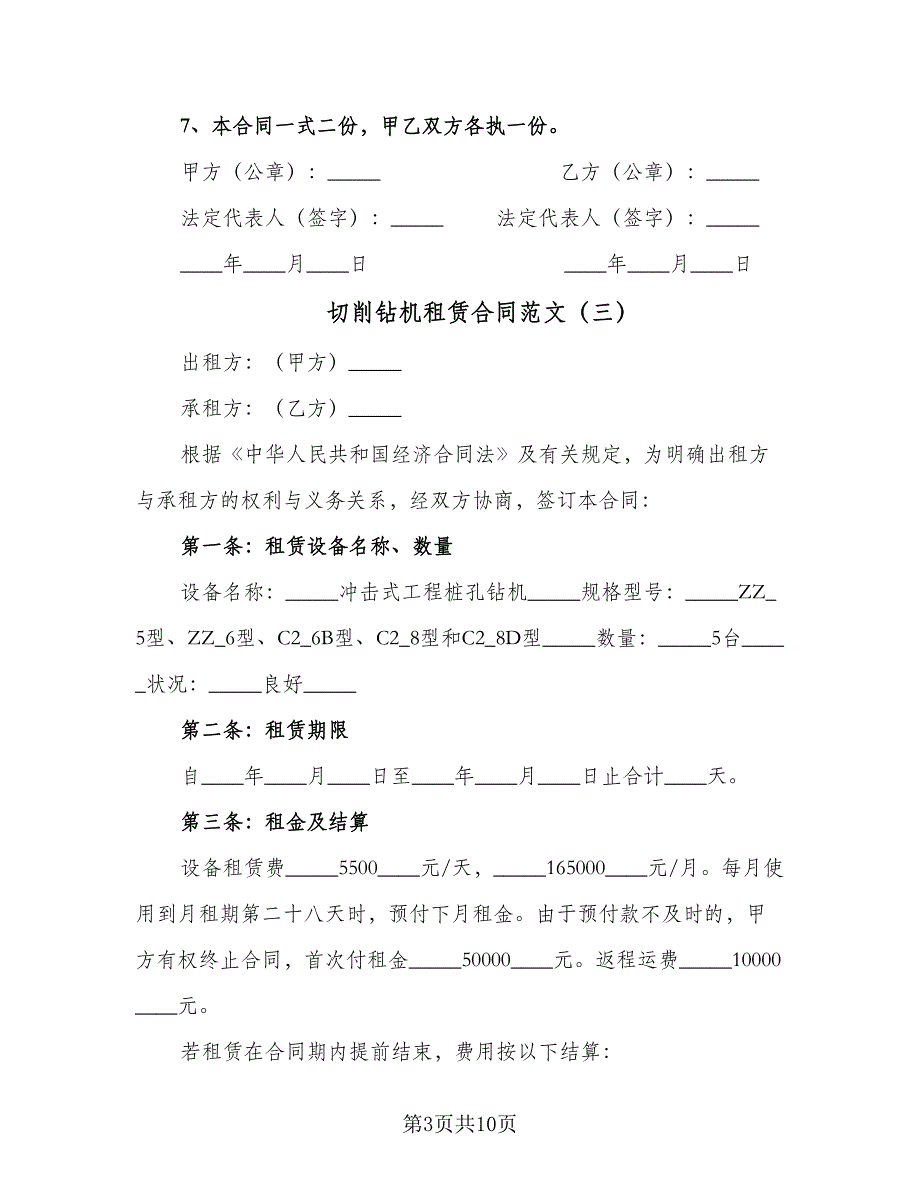 7、本合同一式二份，甲乙双方各执一份。
甲方（公章）：_____ 乙方（公章）：_____
法定代表人（签字）：_____ 法定代表人（签字）：_____
____年____月____日 ____年____月____日
切削钻机租赁合同范文（三）
出租方：（甲方）_____
承租方：（乙方）_____
根据《中华人民共和国经济合同法》及有关规定，为明确出租方
与承租方的权利与义务关系，经双方协商，签订本合同：
第一条：租赁设备名称、数量
设备名称：_____冲击式工程桩孔钻机_____规格型号：_____ZZ_
5型、ZZ_6型、C2_6B型、C2_8型和C2_8D型_____数量：_____5台____
_状况：_____良好_____
第二条：租赁期限
自____年____月____日至____年____月____日止合计____天。
第三条：租金及结算
设备租赁费_____5500____元/天，_____165000____元/月。每月使
用到月租期第二十八天时，预付下月租金。由于预付款不及时的，甲
方有权终止合同，首次付租金_____50000____元。返程运费_____10000
____元。
若租赁在合同期内提前结束，费用按以下结算：
第3页共10页